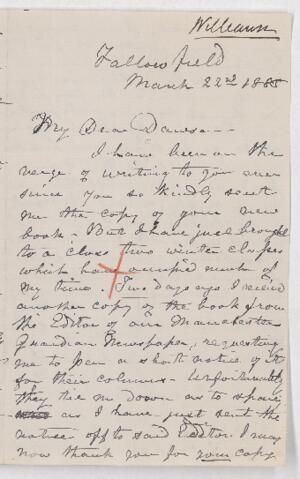 Williamson
Fallowfield
March 22nd 1885
My Dear Dawson
I have been on the
verge of writing to you ever
since you so kindly sent
me the copy of your new
book - But I have just brought
to a close two winter classes
which have occupied much of
my time. Two days ago I received
another copy of the book from
the Editor of our Manchester
Guardian Newspaper, requesting
me to pen a short notice of it
for their columns - Unfortunately
they tie me down as to space
as I have just sent the
notice off to said Editor. I may
now thank you for your copy